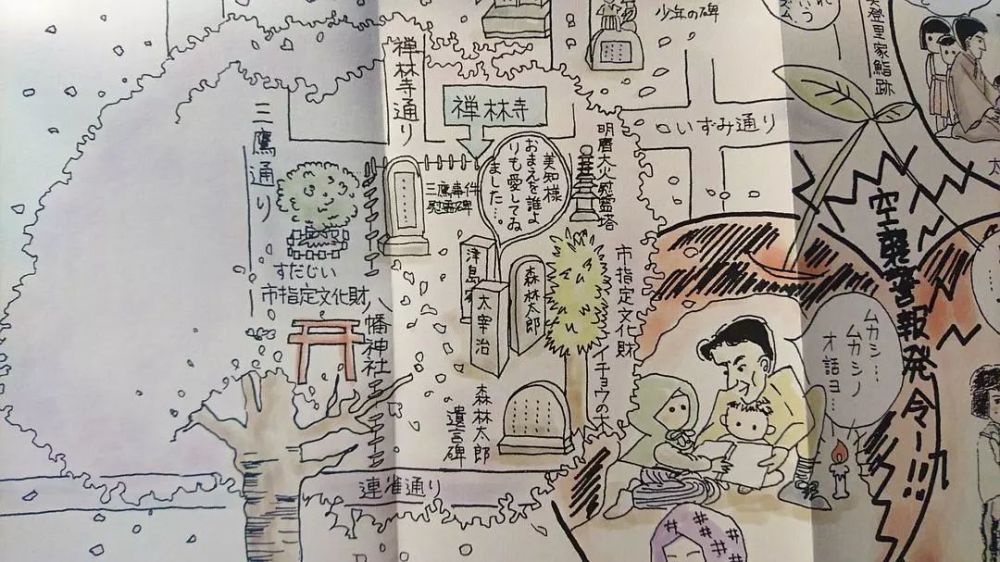 少年の碑
美登里家鮨跡
禅林寺通り
禅林寺
三鷹通り
いずみ通り
明暦大火慰霊塔
美知様
おまえを誰よ
りも愛してゐ
ました…。
三鷹事件
慰霊碑
すだじい
市指定文化財
八幡神社
津島家
太宰治
森林太郎
市指定文化財
イチョウの木
森林太郎
遺言碑
連雀通り
空襲警報発令ー!!!
ムカシ…
ムカシノ
オ話ヨ…